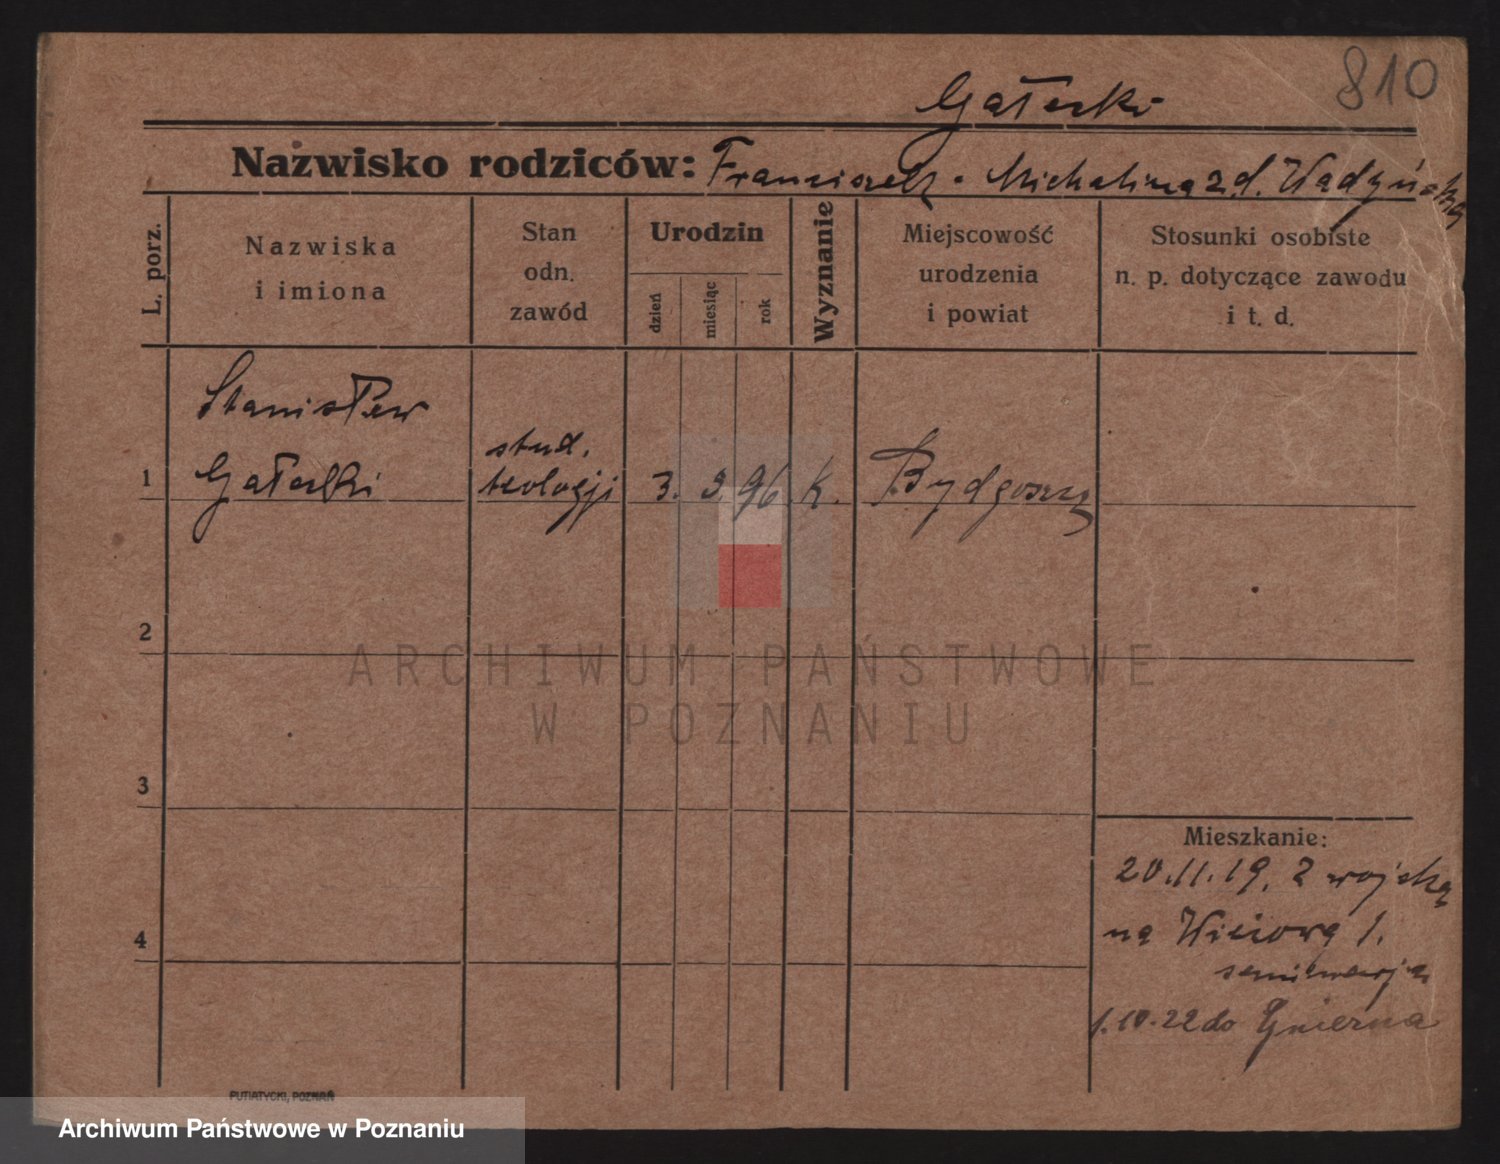 810
Gałecki
Nazwisko rodziców: Franciszek - Michalina z d. Wadyńska
L. porz.
Nazwiska
i imiona
Stan
odn.
zawód
Urodzin
dzień
miesiąc
rok
Wyznanie
Miejscowość
urodzenia
i powiat
Stosunki osobiste
n. p. dotyczące zawodu
i t. d.
Stanisław
stud.
1 Gałecki teologji 3. 9. 96 k. Bydgoszcz
2
ARCHIWUM PAŃSTWOWE
W POZNANIU
3
Mieszkanie:
20.11.19. z wojska
na Wieżową 1.
4
seminarja
1.10.22 do Gniezna
PUTIATYCKI, POZNAŃ
Archiwum Państwowe w Poznaniu